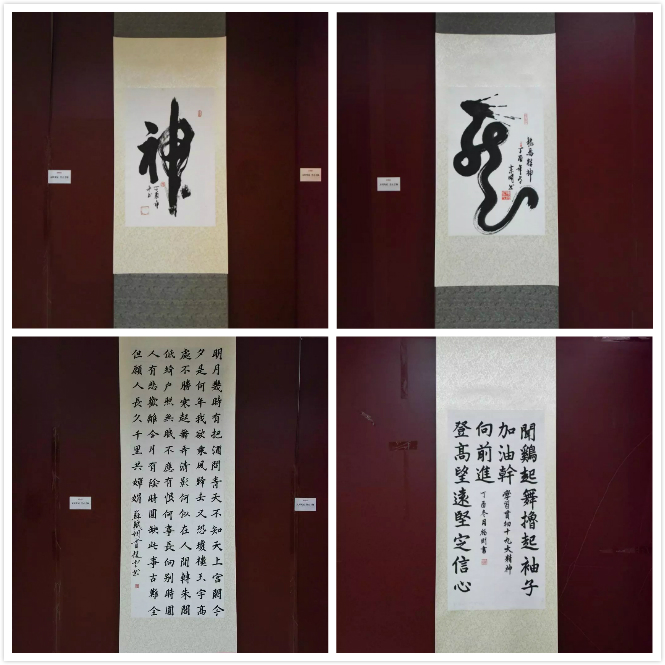 神
龍
龍馬精神
丁酉年冬
明月幾時有把酒問青天不知天上宮闕今
夕是何年我欲乘風歸去又恐瓊樓玉宇高
處不勝寒起舞弄清影何似在人間轉朱閣
低綺户照無眠不應有恨何事長向别時圓
人有悲歡離合月有陰晴圓缺此事古難全
但願人長久千里共嬋娟 蘇軾詞
聞鷄起舞擼起袖子
加油幹 學習贯彻十九大精神
向前進 丁酉冬月 書
登高望遠堅定信心